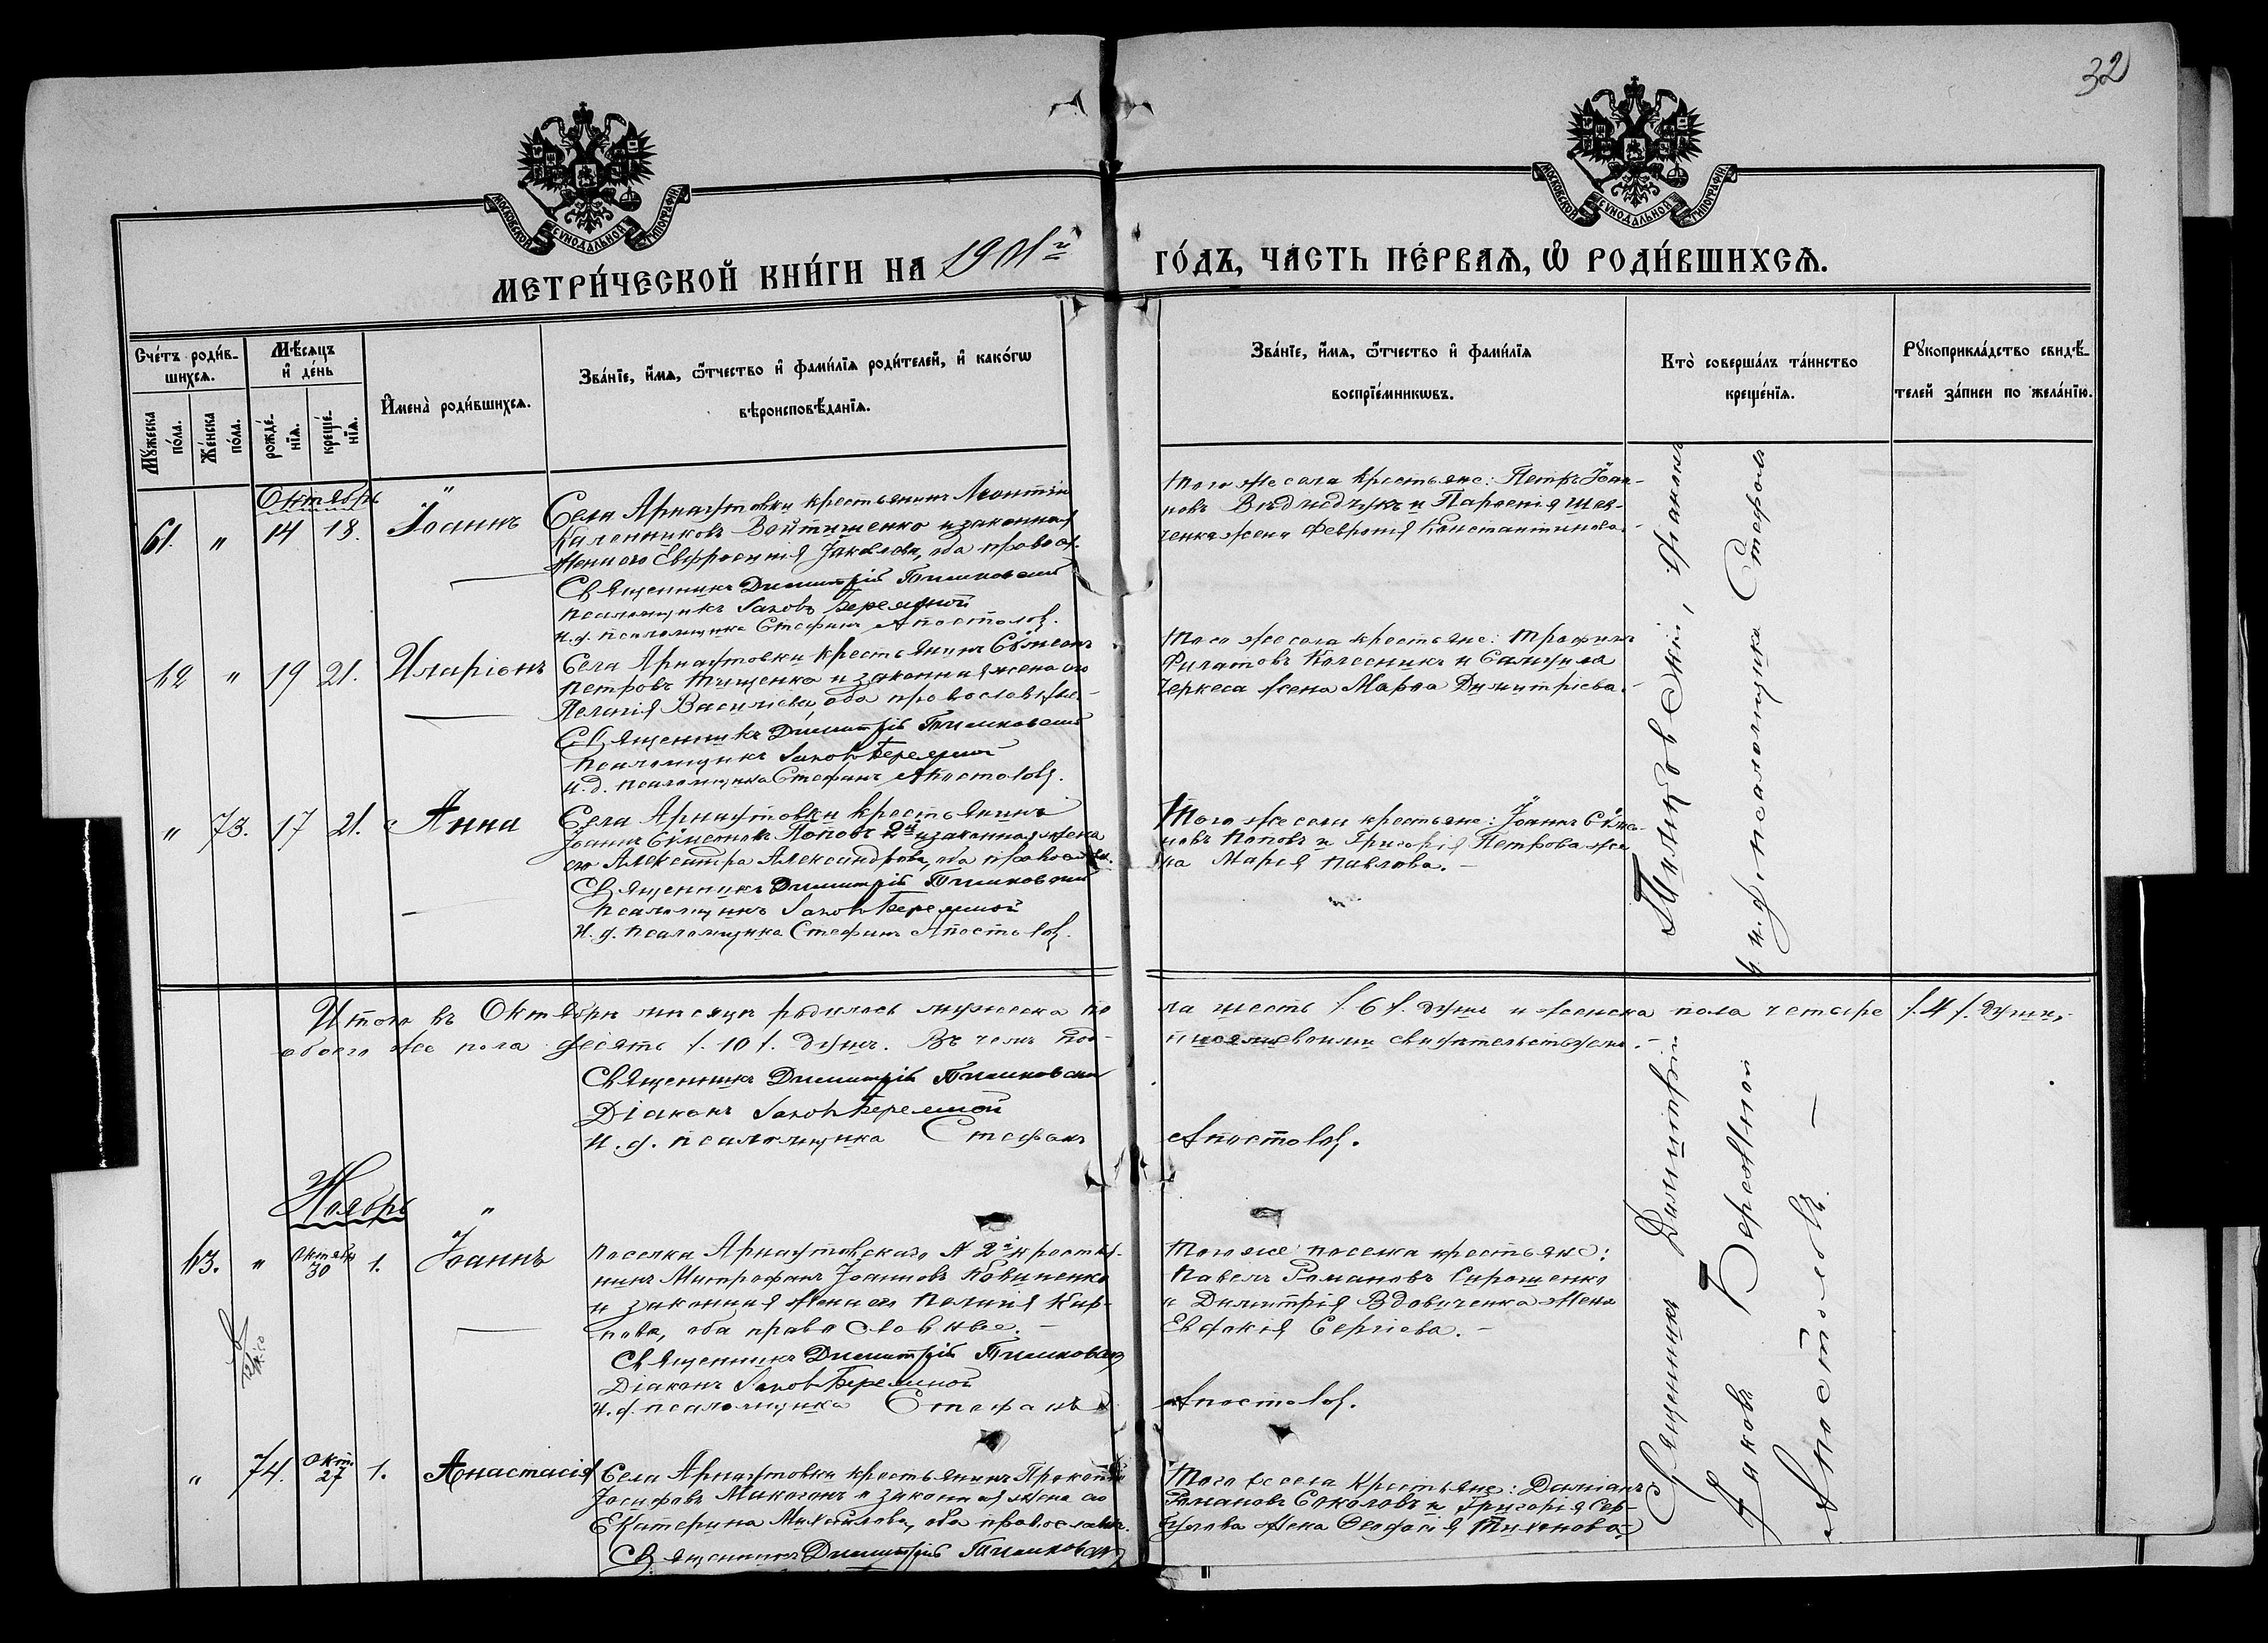 32
МОСКОВСКОЙ СѴНОДАЛЬНОЙ ТИПОГРАФІИ
МОСКОВСКОЙ СѴНОДАЛЬНОЙ ТИПОГРАФІИ
МЕТРИ́ЧЕСКОЙ КНИ́ГИ НА 1901 г. ГО́ДЪ, ЧА́СТЬ ПЕ́РВАѦ, Ѿ РОДИ́ВШИХСѦ.
Сче́тъ роди́в-
шихсѧ.
Мꙋ́жеска по́ла.
Же́нска по́ла.
Мѣ́сѧцъ
и҆ де́нь
рожде́-
нїѧ.
креще́-
нїѧ.
И҆мена̀ роди́вшихсѧ.
Зва́нїе, и҆́мѧ, ѻ҆́тчество и҆ фами́лїѧ роди́телей, и҆ како́гѡ
вѣроисповѣ́данїѧ.
Зва́нїе, и҆́мѧ, ѻ҆́тчество и҆ фами́лїѧ
воспрїе́мникѡвъ.
Кто̀ соверша́лъ та́инство
креще́нїѧ.
Рꙋкоприкла́дство свидѣ́-
телей за́писи по жела́нїю.
Октябрь
61. " 14 18. Іоаннъ
Села Арнаутовки крестьянинъ Леонтій
Калениковъ Войтишенко и законная
жена его Евфросинія Іаковлева, оба правосл.
Священникъ Димитрій Тимковскій
Псаломщикъ Іаковъ Бережной
и.д. псаломщика Стефанъ Апостоловъ.
Того же села крестьяне: Петръ Іоан-
новъ и Парѳенія Шев-
ченка жена Февронія Константинова.-
62 " 19 21. Иларіонъ
Села Арнаутовки крестьянинъ Сѵмеонъ
Петровъ Тищенко и законная жена его
Пелагія Василіева, оба православные.-
Священникъ Димитрій Тимковскій
Псаломщикъ Іаковъ Бережной
и.д. псаломщика Стефанъ Апостоловъ.
Того же села крестьяне: Трофимъ
Филатовъ Колесникъ и Самуила
Черкеса жена Марѳа Димитріева.-
" 73. 17 21. Анна
Села Арнаутовки крестьянинъ
Іоаннъ Сѵмеоновъ Поповъ 2й и законная жена
его Александра Александрова, оба православн.
Священникъ Димитрій Тимковскій
Псаломщикъ Іаковъ Бережной
И.д. псаломщика Стефанъ Апостоловъ.
Того же села крестьяне: Іоаннъ Сѵмео-
новъ Поповъ и Григорія Петрова же
на Марія Павлова.-
Итого въ Октябрѣ мѣсяцѣ родилось мужеска по
ла шесть /.6/. душъ и женска пола четыре /.4/. души,-
обоего же пола десять /.10/. душъ. Въ чемъ под-
писями своими свидѣтельствуемъ.-
Священникъ Димитрій Тимковскій
Діаконъ Іаковъ Бережной
И.д. псаломщика Стефанъ Апостоловъ.
Ноябрь
63. " Октября 30 1. Іоаннъ
Поселка Арнаутовскаго № 2й крестья-
нинъ Митрофанъ Іоанновъ
и законная жена его Пелагія Кар-
пова, оба православные.-
Священникъ Димитрій Тимковскій
Діаконъ Іаковъ Бережной
и.д. псаломщика Стефанъ Апостоловъ.
Того же поселка крестьяне:
Павелъ Романовъ Сирошенко
и Димитрія Вдовиченка жена
Евдокія Сергіева.-
" 74. Окт. 27 1. Анастасія
Села Арнаутовки крестьянинъ Прокопій
Іосифовъ Макогонъ и законная жена его
Екатерина Михайлова, оба православн.
Священникъ Димитрій Тимковскій
Того же села крестьяне: Даміанъ
Романовъ Соколовъ и Григорія
жена Ѳеодосія Тихонова
Священникъ Димитрій Тимковскій, діаконъ
Іаковъ Бережной и и.д. псаломщика Стефанъ
Апостоловъ. —